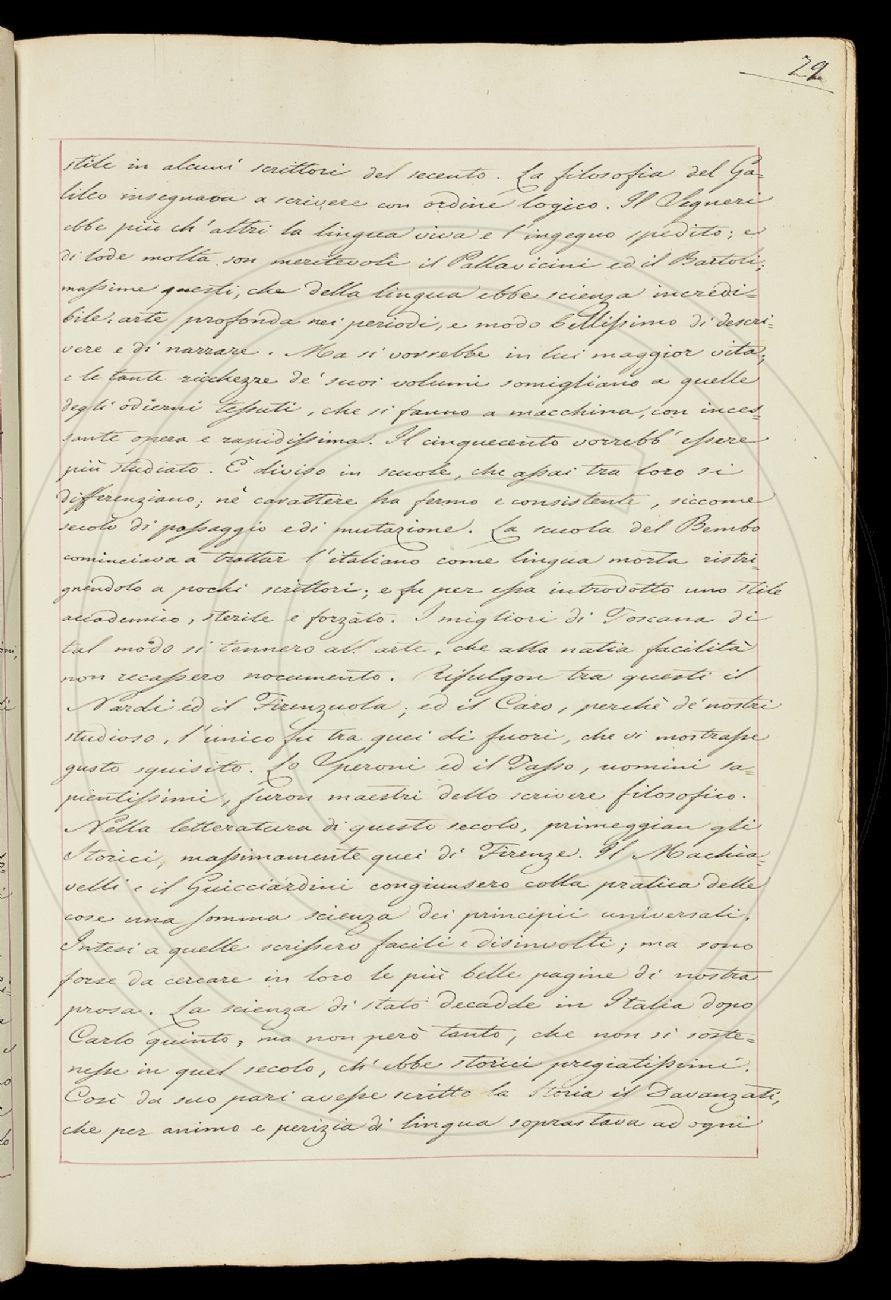 29
stile in alcuni scrittori del secento. La filosofia del Ga=
lileo insegnava a scrivere con ordine logico. Il Segneri
ebbe più ch'altri la lingua viva e l'ingegno spedito; e
di lode molta son meritevoli il Pallavicini ed il Bartoli;
massime questi, che della lingua ebbe scienza incredi=
bile, arte profonda nei periodi, e modo bellissimo di descri=
vere e di narrare. Ma si vorrebbe in lui maggior vita;
e le tante ricchezze de' suoi volumi somigliano a quelle
degli odierni tessuti, che si fanno a macchina, con inces=
sante opera e rapidissima. Il cinquecento vorrebb' essere
più studiato. È diviso in scuole, che assai tra loro si
differenziano; nè carattere ha fermo e consistente, siccome
secolo di passaggio e di mutazione. La scuola del Bembo
cominciava a trattar l'italiano come lingua morta ristri=
gnendolo a pochi scrittori; e fu per essa introdotto uno stile
accademico, sterile e forzato. I migliori di Toscana di
tal modo si tennero all'arte, che alla natia facilità
non recassero nocumento. Rifulgon tra questi il
Nardi ed il Firenzuola; ed il Caro, perchè de' nostri
studioso, l'unico fu tra quei di fuori, che vi mostrasse
gusto squisito. Lo Speroni ed il Tasso, uomini sa=
pientissimi, furon maestri dello scrivere filosofico.
Nella letteratura di questo secolo, primeggian gli
Storici, massimamente quei di Firenze. Il Machia=
velli e il Guicciardini congiunsero colla pratica delle
cose una somma scienza dei principii universali.
Intesi a quelle scrissero facili e disinvolti; ma sono
forse da cercare in loro le più belle pagine di nostra
prosa. La scienza di stato decadde in Italia dopo
Carlo quinto, ma non però tanto, che non si soste=
nesse in quel secolo, ch'ebbe storici pregiatissimi.
Così da suo pari avesse scritto la Storia il Davanzati,
che per animo e perizia di lingua soprastava ad ogni